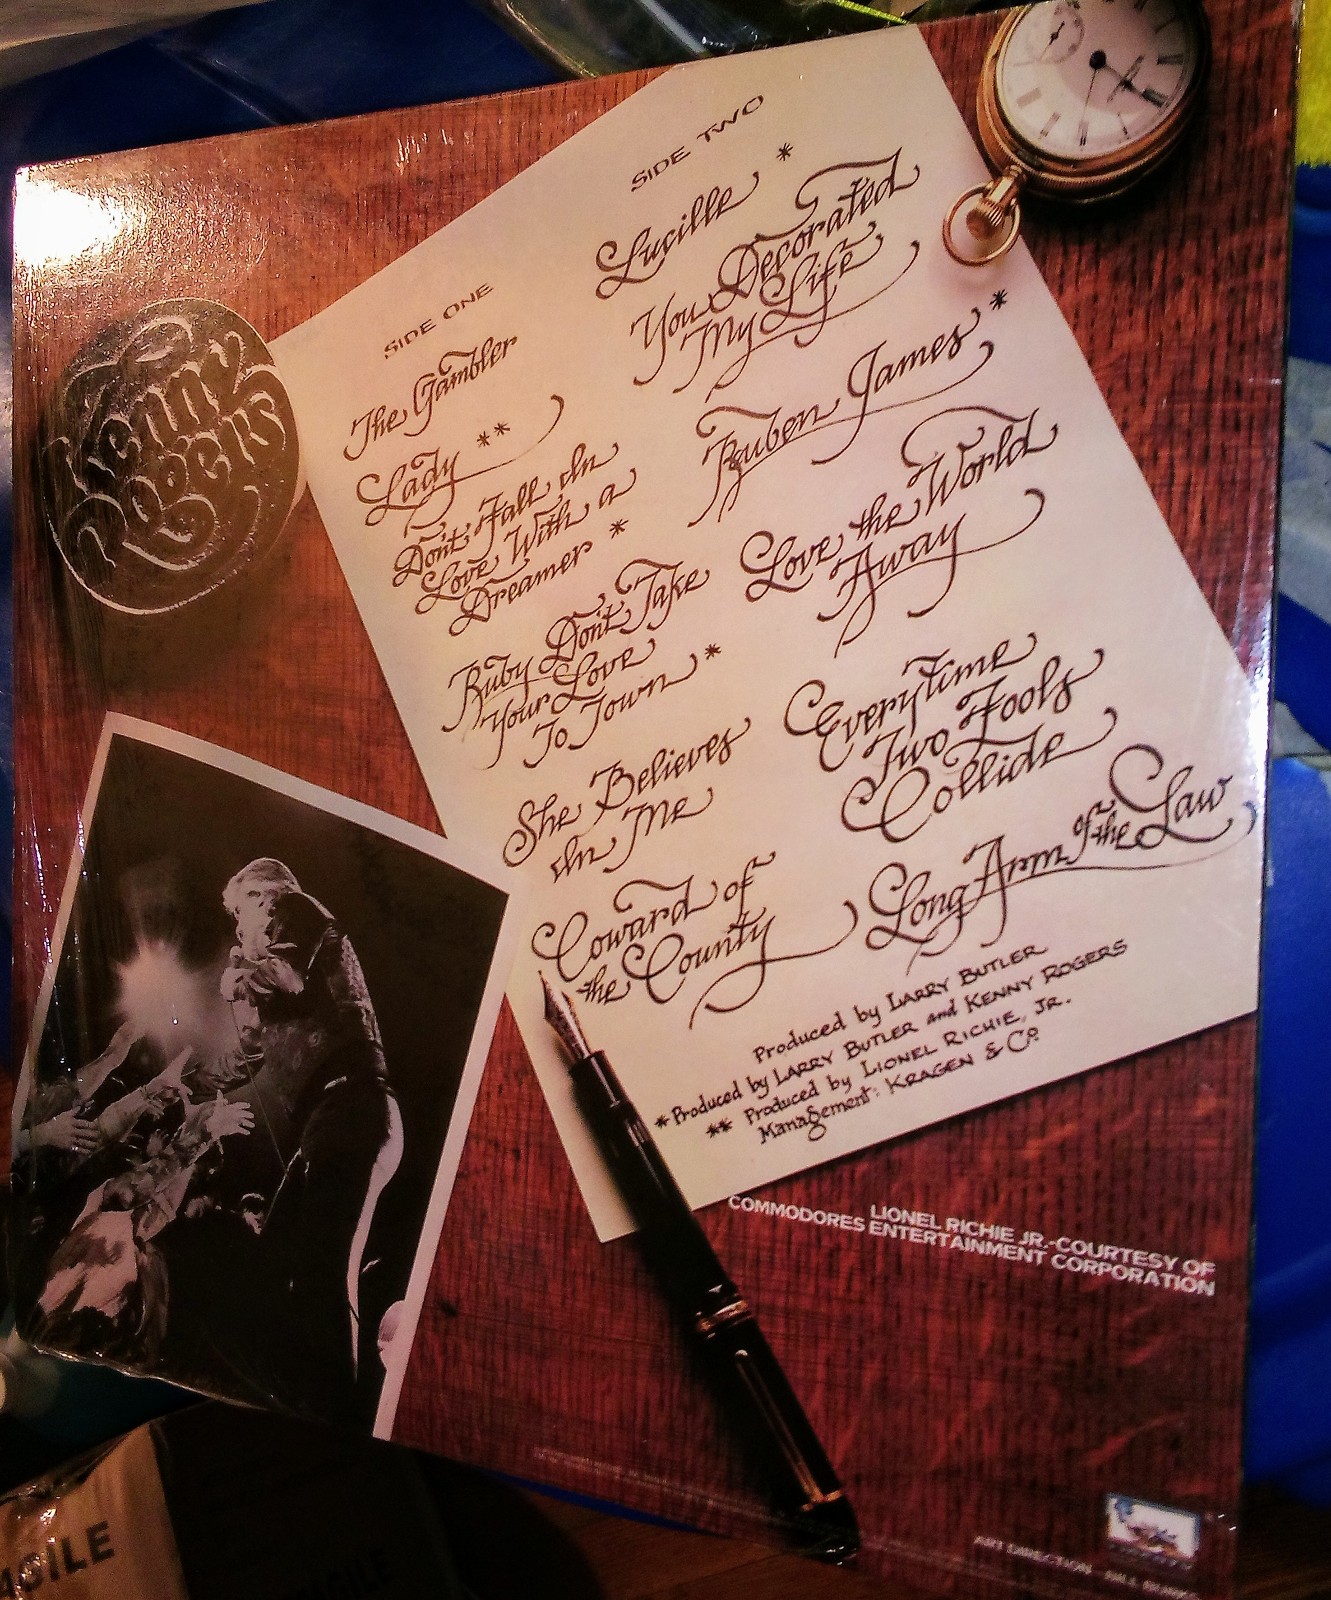 Kenny
Rogers
SIDE ONE
The Gambler
Lady **
Don't Fall In
Love With a
Dreamer *
Ruby Don't Take
Your Love
To Town *
She Believes
In Me
Coward of
the County
SIDE TWO
Lucille *
You Decorated
My Life
Reuben James *
Love the World
Away
Everytime
Two Fools
Collide
Long Arm of the Law
Produced by LARRY BUTLER
*Produced by LARRY BUTLER and KENNY ROGERS
** Produced by LIONEL RICHIE, JR.
Management: KRAGEN & Co.
LIONEL RICHIE JR.-COURTESY OF
COMMODORES ENTERTAINMENT CORPORATION
ART DIRECTION